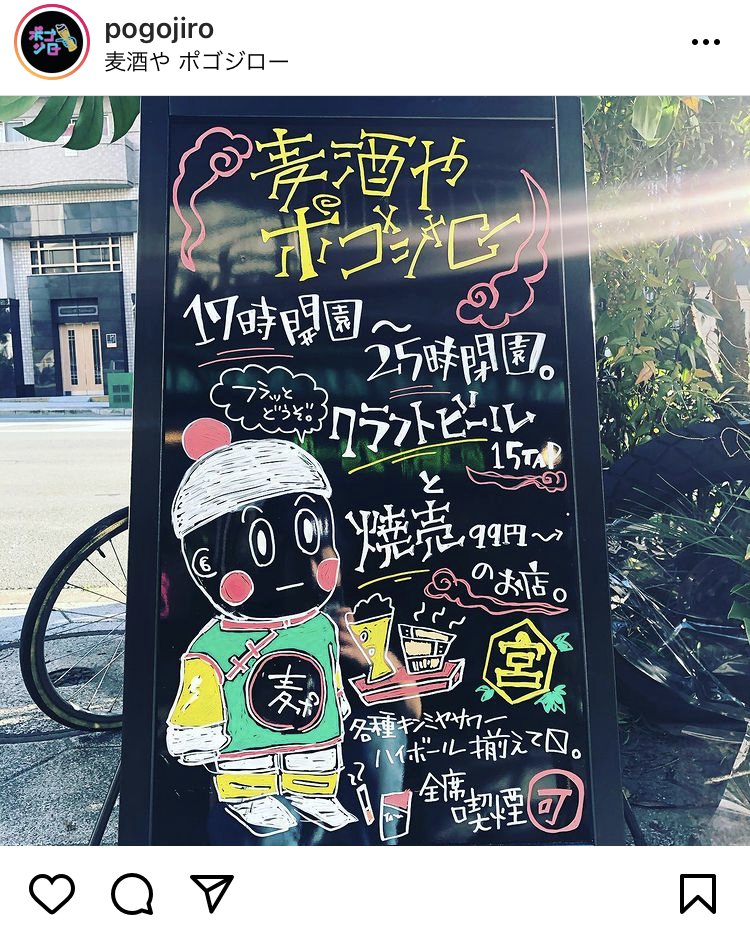 pogojiro
麦酒や ポゴジロー
麦酒や
ポゴジロー
17時開園〜
25時閉園。
フラッと
どうぞ!!
クラフトビール
15TAP
と
焼売 99円〜
のお店。
麦ポ
宮
各種キンミヤサワー
ハイボール揃えて〼。
全席
喫煙 可